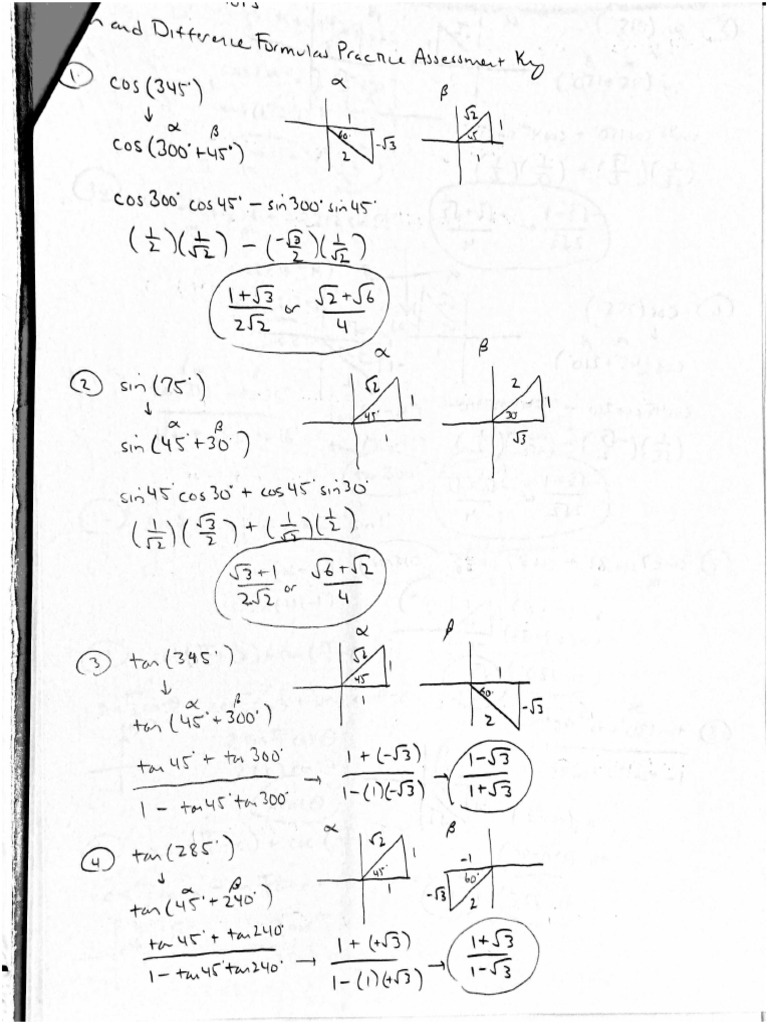 and Difference Formulas Practice Assessment Key
① cos(345°)
↓
α β
cos(300°+45°)
α
1
60°
-√3
2
β
√2
1
45°
1
cos300° cos45° – sin300° sin45°
(1/2)(1/√2) – (-√3/2)(1/√2)
1+√3/2√2 or √2+√6/4
② sin(75°)
↓
α β
sin(45°+30°)
α
√2
1
45°
1
β
2
1
30°
√3
sin45° cos30° + cos45° sin30°
(1/√2)(√3/2) + (1/√2)(1/2)
√3+1/2√2 or √6+√2/4
③ tan(345°)
↓
α β
tan(45°+300°)
α
1
45°
1
β
1
60°
-√3
2
tan45° + tan300°/1 – tan45° tan300° → 1+(-√3)/1-(1)(-√3) → 1-√3/1+√3
④ tan(285°)
↓
α β
tan(45°+240°)
α
√2
1
45°
1
β
-1
60°
-√3
2
tan45° + tan240°/1 – tan45° tan240° → 1+(+√3)/1-(1)(+√3) → 1+√3/1-√3